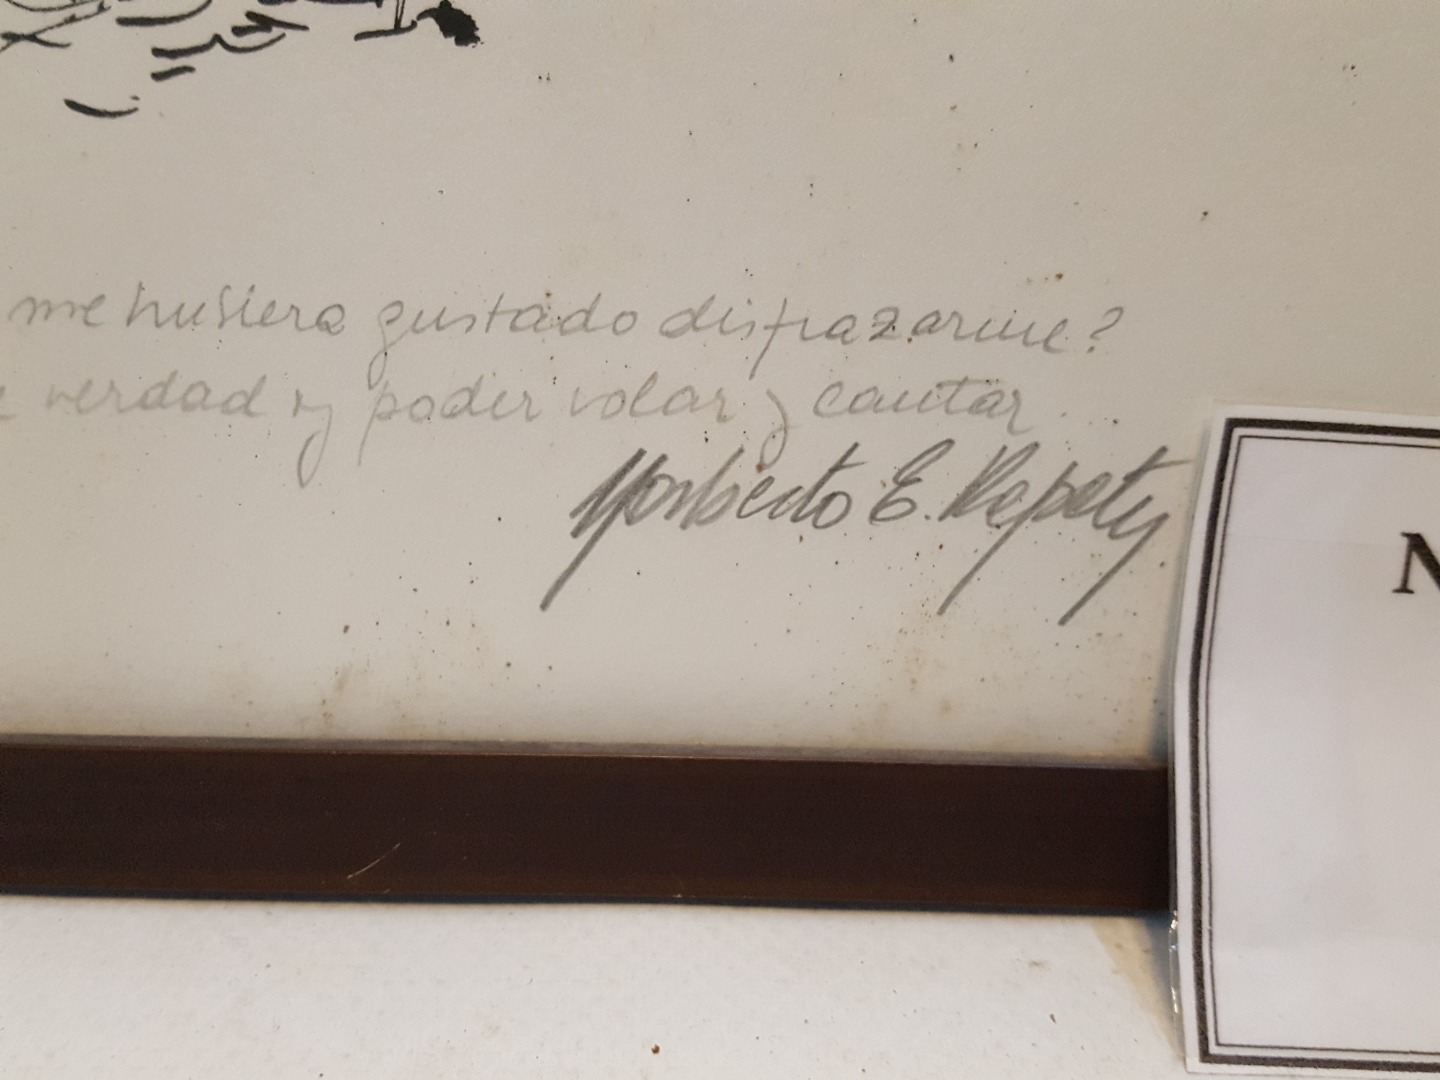 me hubiera gustado disfrazarme?
verdad y poder volar y cantar.
Norberto E. Repety
N